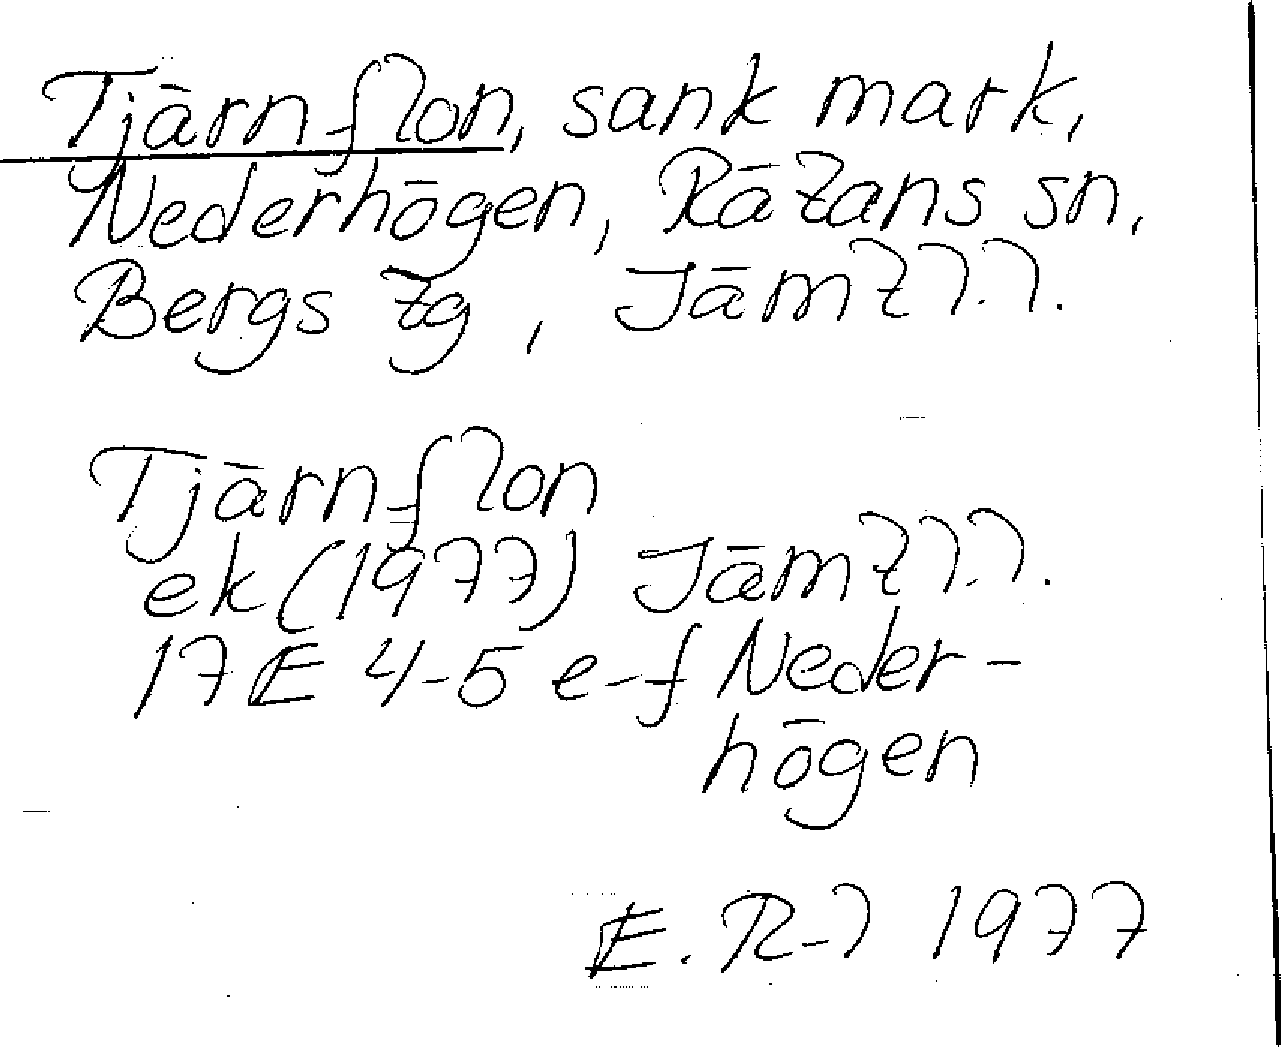 Tjärnflon, sank mark,
Nederhögen, Rätans sn,
Bergs tg, Jämtl.l.
Tjärnflon
ek (1977) Jämtl.l.
17E 4-5 e-f Neder-
högen
E. R-l 1977